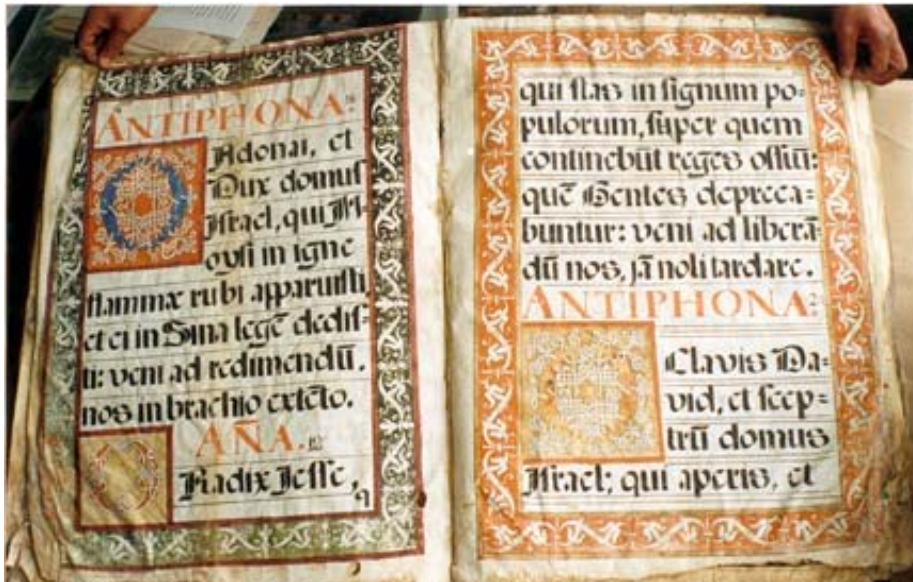 ANTIPHONA.
O
Adonai, et
Dux domus
Israel, qui M-
oysi in igne
flammæ rubi apparuisti,
et ei in Sina legē dedis-
ti: veni ad redimendū.
nos in brachio extēto.
AÑA.
O
Radix Jesse,
qui stas in signum po-
pulorum, super quem
continebūt reges os suū:
quē Gentes depreca-
buntur: veni ad liberā-
dū nos, jā noli tardare.
ANTIPHONA.
O
Clavis Da-
vid, et scep-
trū domus
Israel; qui aperis, et